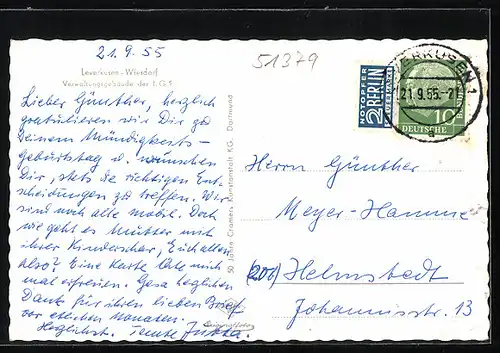 21.9.55
51379
Leverkusen - Wiesdorf
Verwaltungsgebäude der I.G.S.
Lieber Günther, herzlich
gratulieren wir Dir zu
Deinem Mündigkeits-
geburtstag u. wünschen
Dir, stets die richtigen Ent-
scheidungen zu treffen. Wir
sind noch alle mobil. Doch
wie geht es Mutter mit
ihrer Kinderschar, Euch allen
also? Eine Karte täte mich
mal erfreuen. Ganz herzlichen
Dank für ihren lieben Brief
vor etlichen Monaten.
Herzlichst. Tante Jutta.
50 Jahre Cramers Kunstanstalt KG. Dortmund
NOTOPFER
2 BERLIN
STEUERMARKE
ERKUSEN 1
21.9.55.-7
10
DEUTSCHE
Herrn Günther
Meyer-
(20b) Helmstedt
Johannisstr. 13